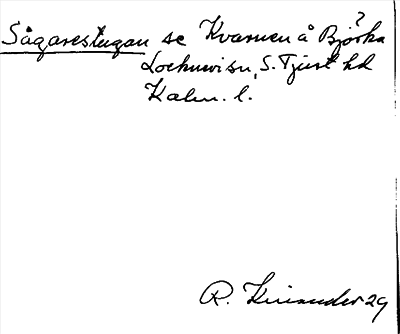 ?
Sågarestugan se Kvarnen å Björka
Locknevi sn, S. Tjust hd
Kalm. l.
R. Kinander 29